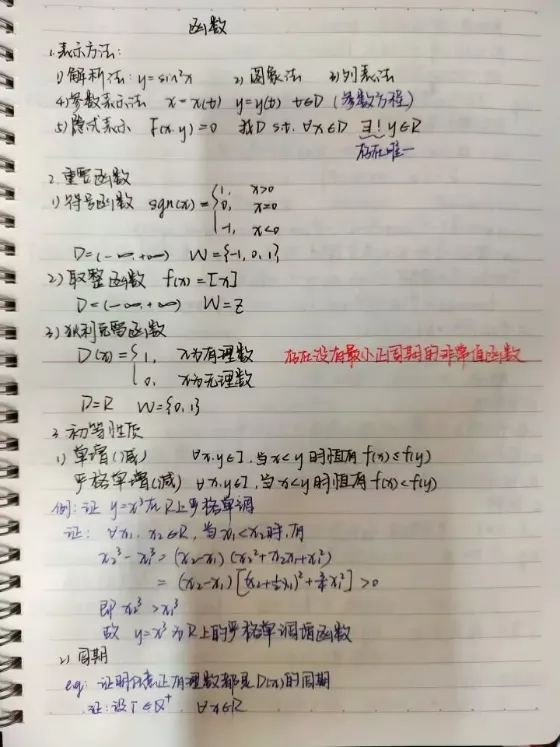 函数
1.表示方法:
1)解析法: y=sin²x 2) 图象法 3)列表法
4)参数表示法 x=x(t) y=y(t) t∈D (参数方程)
5)隐式表示 F(x.y)=0 找D s.t. ∀x∈D ∃! y∈R
存在唯一
2.重要函数
1)符号函数 sgn(x)={1, x>0
0, x=0
-1, x<0
D=(-∞,+∞) W={-1,0,1}
2)取整函数 f(x)=[x]
D=(-∞,+∞) W=Z
3)狄利克雷函数
D(x)={1, x为有理数 存在没有最小正周期的非常值函数
0, x为无理数
D=R W={0,1}
3.初等性质
1)单增(减) ∀x.y∈I,当x<y时恒有f(x)≤f(y)
严格单增(减) ∀x.y∈I,当x<y时恒有f(x)<f(y)
例:证 y=x³在R上严格单调
证: ∀x₁,x₂∈R,当x₁<x₂时,有
x₂³-x₁³=(x₂-x₁)(x₂²+x₂x₁+x₁²)
=(x₂-x₁)[(x₂+½x₁)²+¾x₁²]>0
即 x₂³>x₁³
故 y=x³为R上的严格单调增函数
2)周期
eg: 证明任意正有理数都是D(x)的周期
证:设T∈Q⁺ ∀x∈R